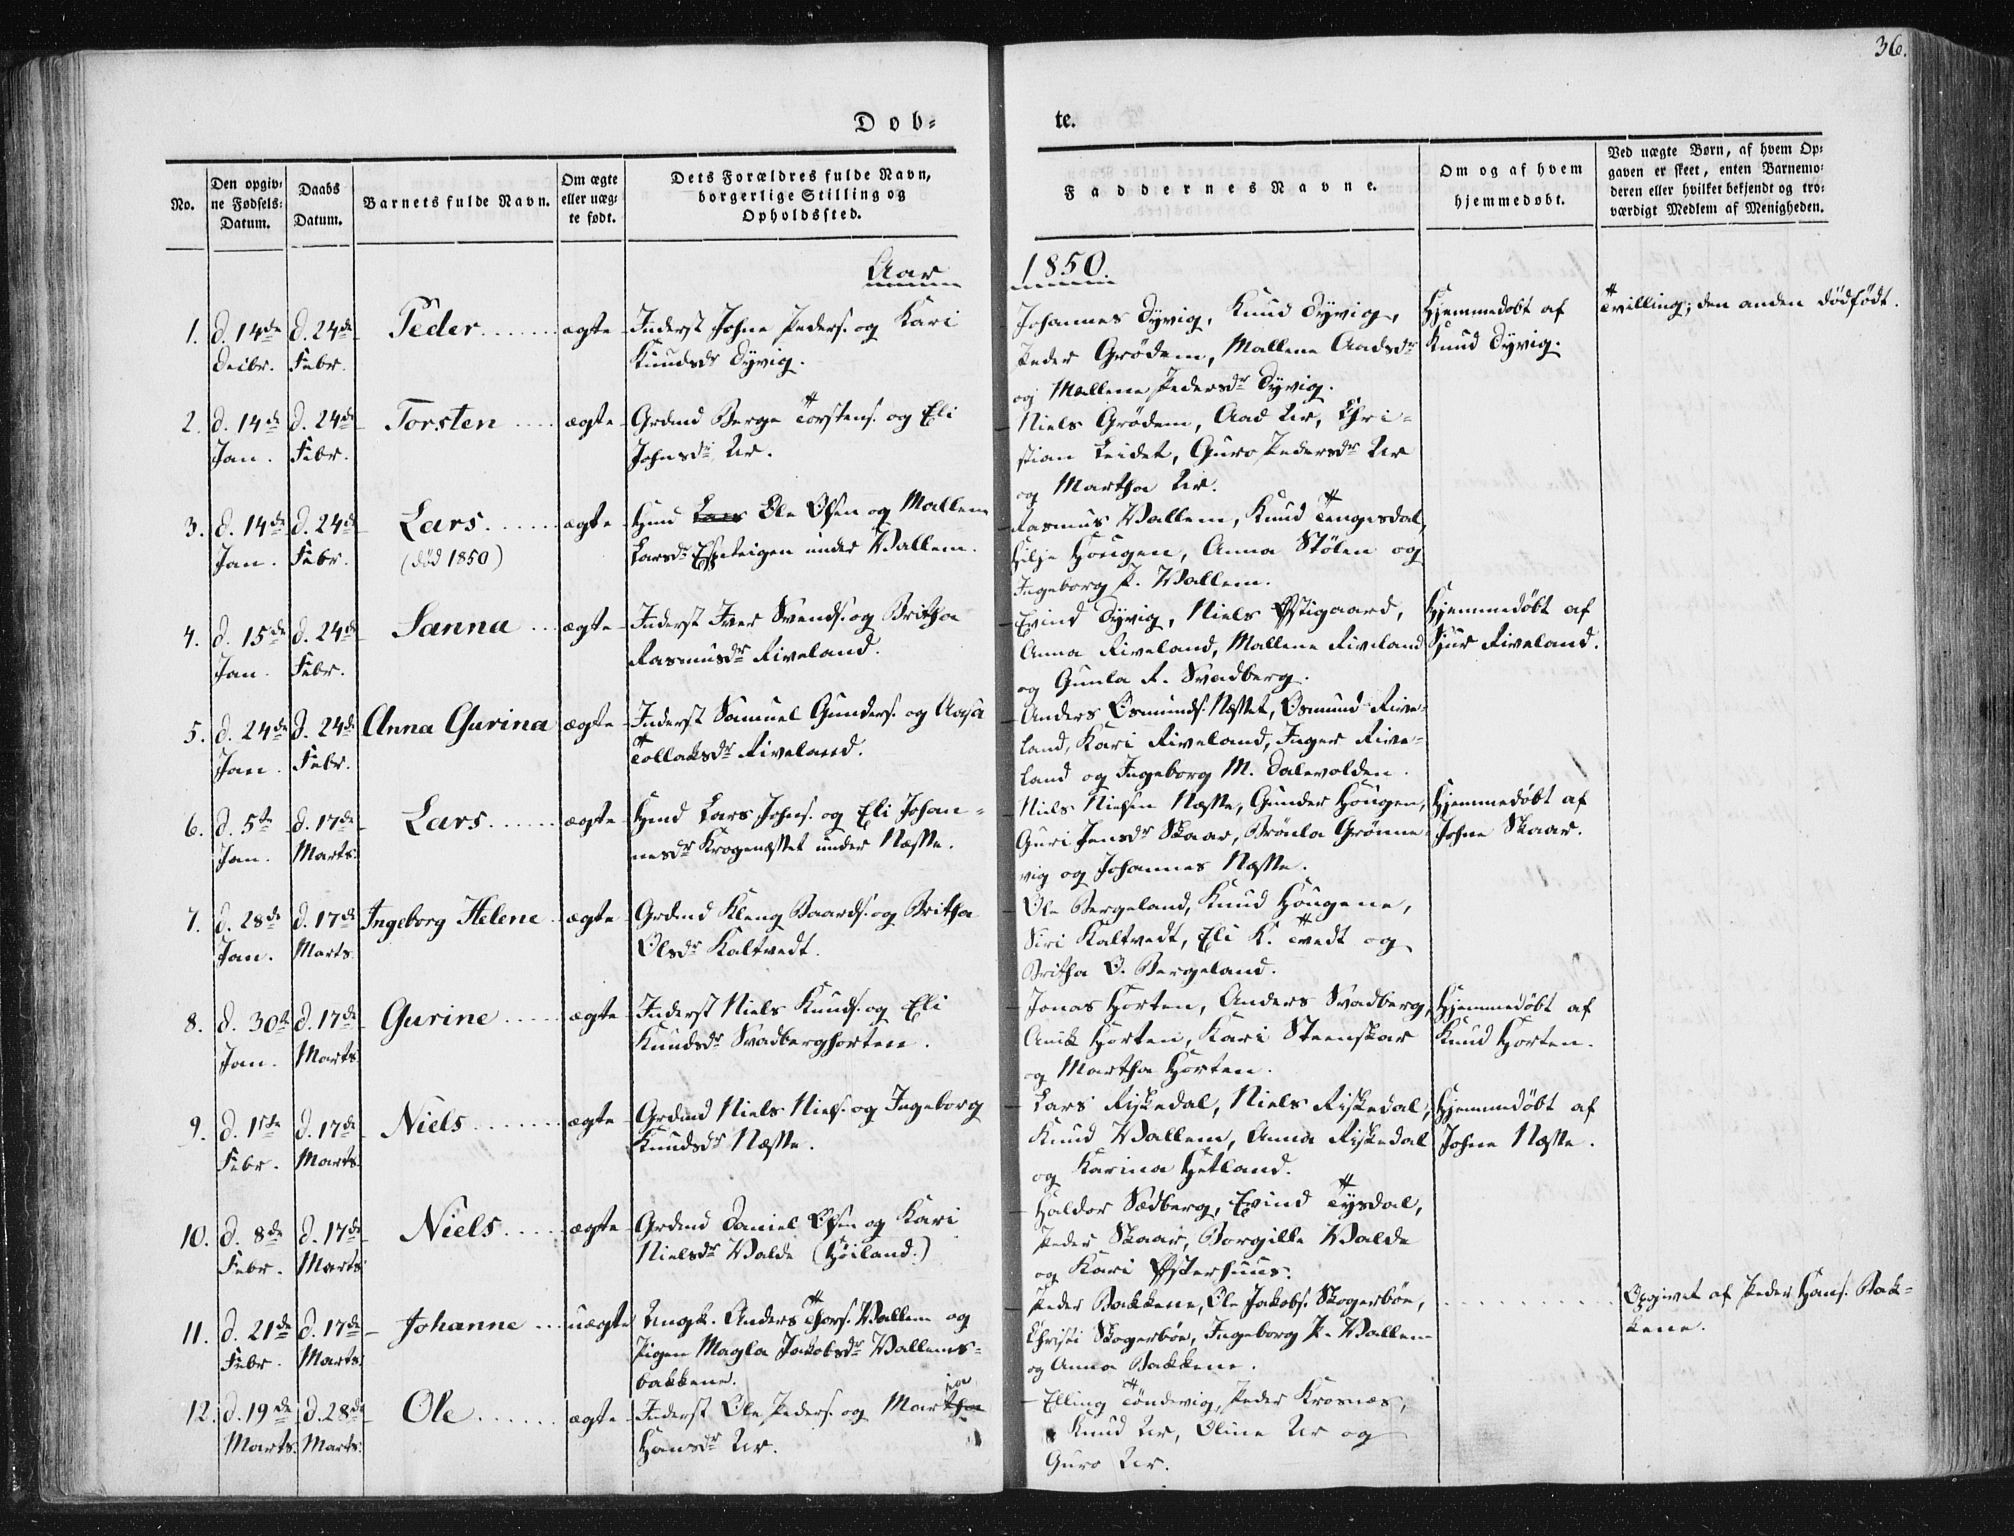 36.
Døb-
te.
No.
Den opgiv-
ne Fødsels-
Datum.
Daabs
Datum.
Barnets fulde Navn.
Om ægte
eller uæg-
te født.
Dets Forældres fulde Navn,
borgerlige Stilling og
Opholdssted.
Faddernes Navne.
Om og af hvem
hjemmedøbt.
Ved uægte Børn, af hvem Op-
gaven er skeet, enten Barnemo-
deren eller hvilket bekjendt og tro-
værdigt Medlem af Menigheden.
Aar
1850.
1.
d. 14de
Decbr.
d. 24de
Febr.
Peder
ægte
Inderst Johne Peders. og Kari
Knudsdr Dyvig.
Johannes Dyvig, Knud Dyvig,
Peder Grödem, Mallene Aadsdr
og Mallene Pedersdr Dyvig.
Hjemmedøbt af
Knud Dyvig.
Tvilling; den anden dødfødt.
2.
d. 14de
Jan.
d. 24de
Febr.
Torsten
ægte
Grdmd Berge Torstens. og Eli
Johnsdr Ur.
Niels Grödem, Aad Ur, Chri-
stian Leidet, Guro Pedersdr Ur
og Martha Ur.
3.
d. 14de
Jan.
d. 24de
Febr.
Lars
(död 1850)
ægte
Hmd Lars Ole Olsen og Mallene
Larsdr Espeteigen under Vallem.
Rasmus Vallem, Knud Tengesdal,
Helje Hougen, Anna Stölen og
Ingeborg P. Vallem.
4.
d. 15de
Jan.
d. 24de
Febr.
Sanna
ægte
Inderst Iver Svends. og Britha
Rasmusdr Riveland.
Evind Dyvig, Niels Østigaard,
Anna Riveland, Mallene Riveland
og Gunla R. Svadberg.
Hjemmedøbt af
Sjur Riveland.
5.
d. 24de
Jan.
d. 24de
Febr.
Anna Gurina
ægte
Inderst Samuel Gunders. og Aasa
Tollaksdr Riveland.
Anders Osmunds. Næsset, Osmund Rive-
land, Kari Riveland, Inger Rive-
land og Ingeborg M. Dalevolden.
6.
d. 5te
Jan.
d. 17de
Marts.
Lars
ægte
Hmd Lars Johns. og Eli Johan-
nesdr Krogenæsset under Næsse.
Niels Nielsen Næsse, Gunder Hougen,
Guri Jensdr Skaar, Brönla Grönne-
vig og Johannes Næsse.
Hjemmedøbt af
Johne Skaar.
7.
d. 28de
Jan.
d. 17de
Marts
Ingeborg Helene
ægte
Grdmd Kleng Baards. og Britha
Olsdr Kaltvedt.
Ole Bergeland, Knud Hougene,
Siri Kaltvedt, Eli K. Tvedt og
Britha O. Bergeland.
8.
d. 30te
Jan.
d. 17de
Marts
Gurine
ægte
Inderst Niels Knuds. og Eli
Knudsdr Svadberghorten.
Jonas Horten, Anders Svadberg,
Anik Horten, Kari Steenskar
og Martha Horten.
Hjemmedøbt af
Knud Horten.
9.
d. 1ste
Febr.
d. 17de
Marts
Niels
ægte
Grdmd Niels Niels. og Ingeborg
Knudsdr Næsse.
Lars Riskedal, Niels Riskedal,
Knud Vallem, Anna Riskedal
og Karina Hetland.
Hjemmedøbt af
Johne Næsse.
10.
d. 8de
Febr.
d. 17de
Marts
Niels
ægte
Grdmd Daniel Olsen og Kari
Nielsdr Valde (Höiland.)
Haldor Sædberg, Evind Tysdal,
Peder Skaar, Borgille Valde
og Kari Østerhuus.
11.
d. 21de
Febr.
d. 17de
Marts
Johanne
uægte
Ungk. Anders Thors. Vallem og
Pigen Magla Jakobsdr Vallems-
bakkene.
Peder Bakkene, Ole Jakobs. Skogerböe,
Christi Skogerböe, Ingeborg P. Vallem
og Anna Bakkene.
Opgivet af Peder Hans. Bak-
kene.
12.
d. 19de
Marts.
d. 28de
Marts.
Ole
ægte
Inderst Ole Peders. og Martha
Hansdr Ur.
Elling Töndevig, Peder Krosnæs,
Knud Ur, Oline Ur og
Guro Ur.